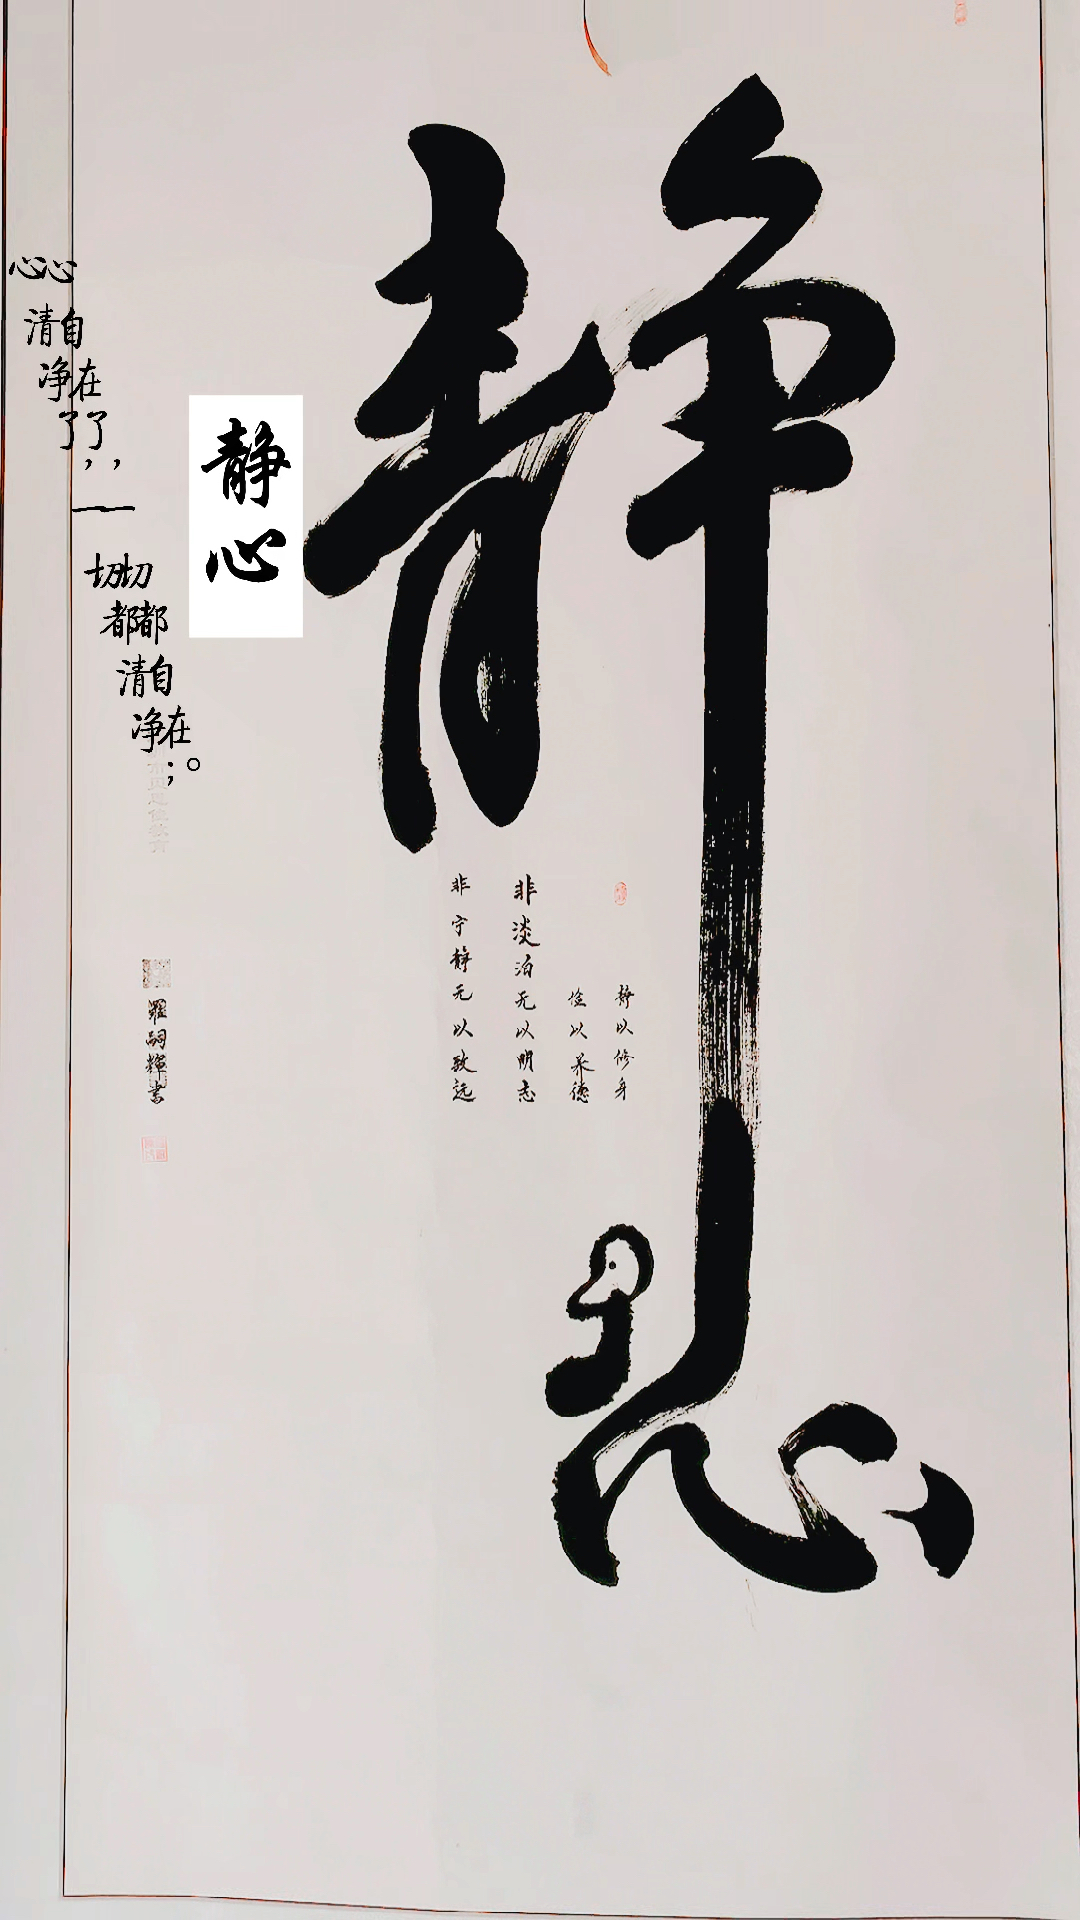 静心
静以修身
俭以养德
非淡泊无以明志
非宁静无以致远
静心
心清净了，一切都清净；
心自在了，一切都自在。
羅嗣輝書